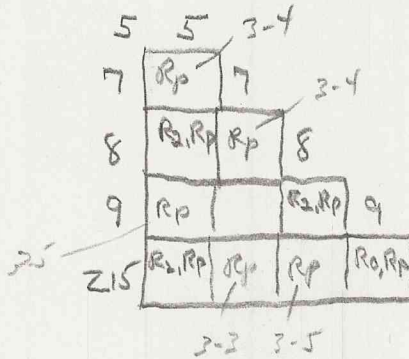 5 5 3-4
7 Rp 7 3-4
8 R2,Rp Rp 8
9 Rp R2,Rp 9
215 R2,Rp Rp Rp R0,Rp
3-3 3-5